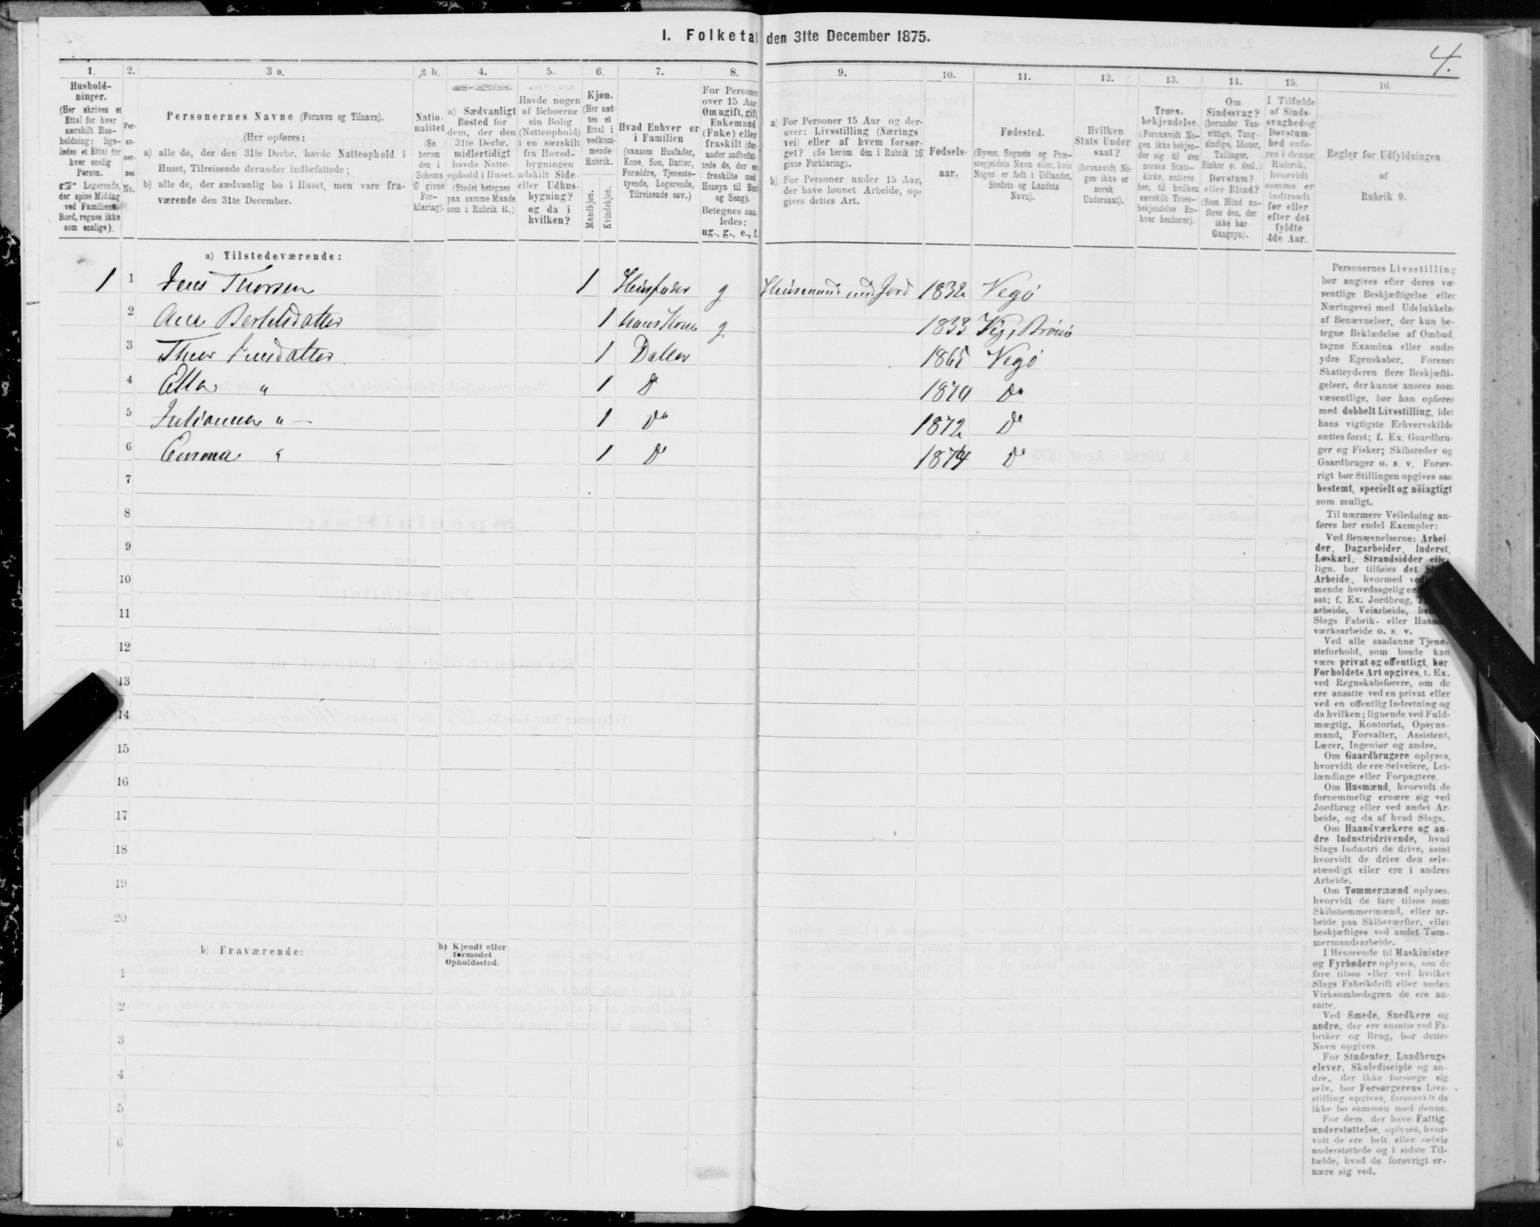 I. Folketal den 31te December 1875.
4.
1. 2. 3 a. 3 b. 4. 5. 6. 7. 8. 9. 10. 11. 12. 13. 14. 15. 16.
Hushold-
ninger.
(Her skrives et
Ettal for hver
særskilt Hus-
holdning; lige-
ledes et Ettal for
hver enslig
Person.
Logerende,
der spise Middag
ved Familiens
Bord, regnes ikke
som enslige).
Per-
so-
ner-
nes
No.
Personernes Navne (Fornavn og Tilnavn).
(Her opføres:
a) alle de, der den 31te Decbr. havde Natteophold i
Huset, Tilreisende derunder indbefattede;
b) alle de, der sædvanlig bo i Huset, men vare fra-
værende den 31te December.
Natio-
nalitet
(Se
herom
den i
Schema
O givne
For-
klaring).
a) Sædvanligt
Bosted for
dem, der den
31te Decbr.
midlertidigt
havde Natte-
ophold i Huset.
(Stedet betegnes
paa samme Maade
som i Rubrik 11.)
Havde nogen
af Beboerne
sin Bolig
(Natteophold)
i en særskilt
fra Hoved-
bygningen
adskilt Side-
eller Udhus-
bygning?
og da i
hvilken?
Kjøn.
(Her sæt-
tes et
Ettal i
vedkom-
mende
Rubrik.
Mandkjøn.
Kvindekjøn.
Hvad Enhver er
i Familien
(saasom Husfader,
Kone, Søn, Datter,
Forældre, Tjeneste-
tyende, Logerende,
Tilreisende osv.)
For Personer
over 15 Aar:
Om ugift, gift,
Enkemand
(Enke) eller
fraskilt (der-
under indbefat-
tede de, der ere
fraskilte med
Hensyn til Bord
og Seng).
Betegnes saa-
ledes:
ug., g., e., f.
a) For Personer 15 Aar og der-
over: Livsstilling (Nærings
vei) eller af hvem forsør-
get? (Se herom den i Rubrik 16
givne Forklaring).
b) For Personer under 15 Aar,
der have lønnet Arbeide, op-
gives dettes Art.
Fødsels-
aar.
Fødested.
(Byens, Sognets og Præ-
stegjeldets Navn eller, hvis
Nogen er født i Udlandet,
Stedets og Landets
Navn).
Hvilken
Stats Under
saat?
(forsaavidt No-
gen ikke er
norsk
Undersaat).
Troes-
bekjendelse.
(Forsaavidt No-
gen ikke bekjen-
der sig til den
norske Stats-
kirke, anføres
her, til hvilken
særskilt Troes-
bekjendelse En-
hver henhører).
Om
Sindssvag?
(herunder Van-
vittige, Tung-
sindige, Idioter,
Tullinger,
Sinker o: desl.).
Døvstum?
eller Blind?
(Som Blind an-
føres den, der
ikke har
Gangsyn).
I Tilfælde
af Sinds-
svaghed og
Døvstum-
hed anfø-
res i denne
Rubrik,
hvorvidt
samme er
indtraadt
før eller
efter det
fyldte
4de Aar.
Regler for Udfyldningen
af
Rubrik 9.
a) Tilstedeværende:
1 1 Jens Thorsen 1 Husfader g Huusmand med Jord 1832 Vegø
2 Ane Bertelsdatter 1 hans Kone g 1833
3 Jensdatter 1 Datter 1865 Vegø
4 " 1 Do 1870 Do
5 Julianna " 1 Do 1872 Do
6 " 1 Do 1874 Do
7
8
9
10
11
12
13
14
15
16
17
18
19
20
b) Fraværende:
b) Kjendt eller
formodet
Opholdssted.
1
2
3
4
5
6
Personernes Livsstilling
bør angives efter deres væ-
sentlige Beskjæftigelse eller
Næringsvei med Udelukkelse
af Benævnelser, der kun be-
tegne Beklædelse af Ombud,
tagne Examina eller andre
ydre Egenskaber. Forener
Skatteyderen flere Beskjæfti-
gelser, der kunne ansees som
væsentlige, bør han opføres
med dobbelt Livsstilling, idet
hans vigtigste Erhvervskilde
sættes først; f. Ex. Gaardbru-
ger og Fisker; Skibsreder og
Gaardbruger o. s. v. Forøv-
rigt bør Stillingen opgives saa
bestemt, specielt og nöiagtigt
som muligt.
Til nærmere Veiledning an-
føres her endel Exempler:
Ved Benævnelserne: Arbei-
der, Dagarbeider, Inderst,
Løskarl, Strandsidder eller
lign. bør tilføies det
Arbeide, hvormed
mende hovedsagelig er
sat; f. Ex. Jordbrug,
arbeide, Veiarbeide,
Slags Fabrik- eller
værksarbeide o. s. v.
Ved alle saadanne Tjene-
steforhold, som baade kan
være privat og offentligt, bør
Forholdets Art opgives, t. Ex.
ved Regnskabsførere, om de
ere ansatte ved en privat eller
ved en offentlig Indretning og
da hvilken; lignende ved Fuld-
mægtig, Kontorist, Opsyns-
mand, Forvalter, Assistent,
Lærer, Ingeniør og andre.
Om Gaardbrugere oplyses,
hvorvidt de ere Selveiere, Lei-
lændinge eller Forpagtere.
Om Husmænd, hvorvidt de
fornemmelig ernære sig ved
Jordbrug eller ved andet Ar-
beide, og da af hvad Slags.
Om Haandværkere og an-
dre Industridrivende, hvad
Slags Industri de drive, samt
hvorvidt de drive den selv-
stændigt eller ere i andres
Arbeide.
Om Tømmermænd oplyses,
hvorvidt de fare tilsøs som
Skibstømmermænd, eller ar-
beide paa Skibsværfter, eller
beskjæftiges ved andet Tøm-
mermandsarbeide.
I Henseende til Maskinister
og Fyrbødere oplyses, om de
fare tilsøs eller ved hvilket
Slags Fabrikdrift eller anden
Virksomhedsgren de ere an-
satte.
Ved Smede, Snedkere og
andre, der ere ansatte ved Fa-
briker og Brug, bør dettes
Navn opgives
For Studenter, Landbrugs-
elever, Skoledisciple og an-
dre, der ikke forsørge sig
selv, bør Forsørgerens Livs-
stilling opgives, forsaavidt de
ikke bo sammen med denne.
For dem, der have Fattig-
understøttelse, oplyses, hvor-
vidt de ere helt eller delvis
understøttede og i sidste Til-
fælde, hvad de forøvrigt er-
nære sig ved.